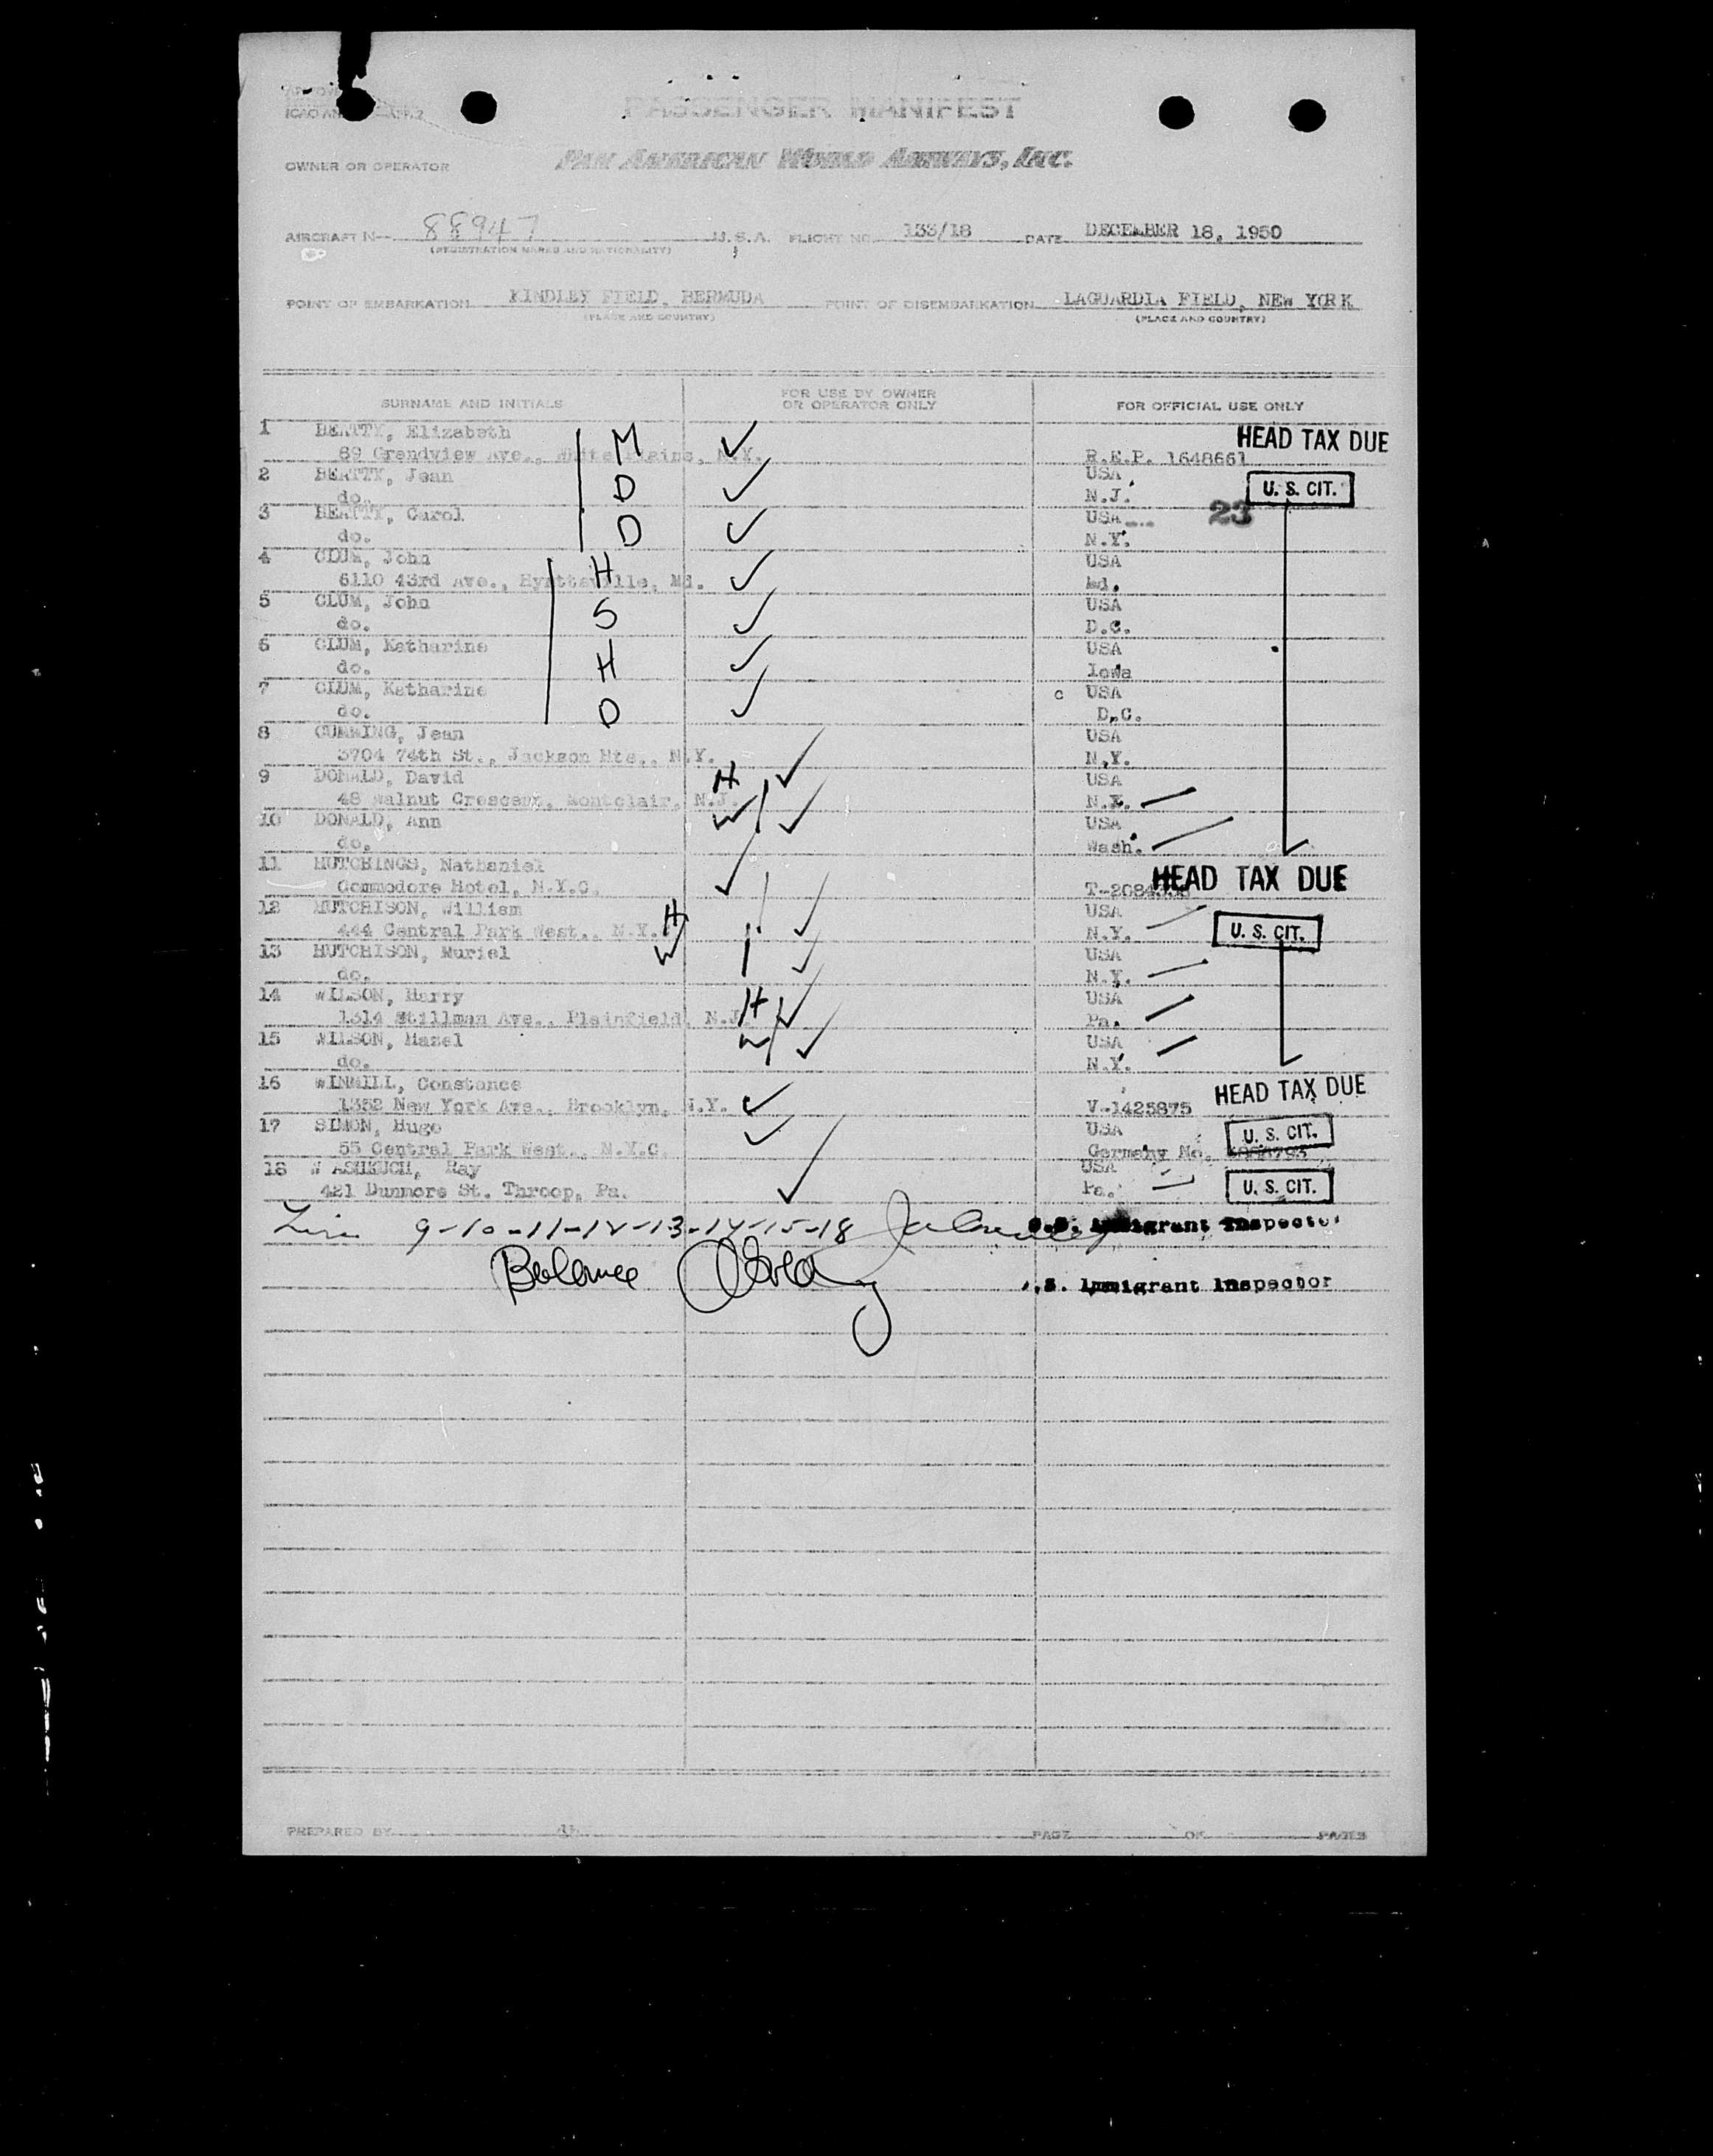 ICAO AN
PASSENGER MANIFEST
OWNER OR OPERATOR PAN AMERICAN WORLD AIRWAYS, INC.
AIRCRAFT N-- 88947 U.S.A. FLIGHT NO. 133/18 DATE DECEMBER 18, 1950
(REGISTRATION MARKS AND NATIONALITY)
POINT OF EMBARKATION KINDLEY FIELD, BERMUDA POINT OF DISEMBARKATION LAGUARDIA FIELD, NEW YORK
(PLACE AND COUNTRY) (PLACE AND COUNTRY)
SURNAME AND INITIALS FOR USE BY OWNER OR OPERATOR ONLY FOR OFFICIAL USE ONLY
1 BEATTY, Elizabeth M HEAD TAX DUE
89 Grandview Ave., White Plains, N.Y. R.E.P. 1648661
2 BEATTY, Jean D USA
do. N.J. U. S. CIT.
3 BEATTY, Carol D USA 23
do. N.Y.
4 CLUM, John H USA
6110 43rd Ave., Hyattsville, Md. Md.
5 CLUM, John S USA
do. D.C.
6 CLUM, Katharine H USA
do. Iowa
7 CLUM, Katharine D c USA
do. D.C.
8 CUMMING, Jean USA
3704 74th St., Jackson Hts., N.Y. N.Y.
9 DONALD, David H USA
48 Walnut Crescent, Montclair, N.J.
10 DONALD, Ann W USA
do. Wash.
11 HUTCHINGS, Nathaniel HEAD TAX DUE
Commodore Hotel, N.Y.C.
12 HUTCHISON, William H USA
444 Central Park West., N.Y. N.Y. U. S. CIT.
13 HUTCHISON, Muriel W USA
do. N.Y.
14 WILSON, Harry H USA
1314 Stillman Ave., Plainfield, N.J. Pa.
15 WILSON, Hazel W USA
do. N.Y.
16 WINMILL, Constance HEAD TAX DUE
1352 New York Ave., Brooklyn, N.Y. V-1425875
17 SIMON, Hugo USA U. S. CIT.
55 Central Park West., N.Y.C. Germany No.
18 Ray USA
421 Dunmore St. Throop, Pa. Pa. U. S. CIT.
9-10-11-12-13-14-15-18 U.S. Immigrant Inspector
Balance .S. Immigrant Inspector
PREPARED BY PAGE OF PAGES